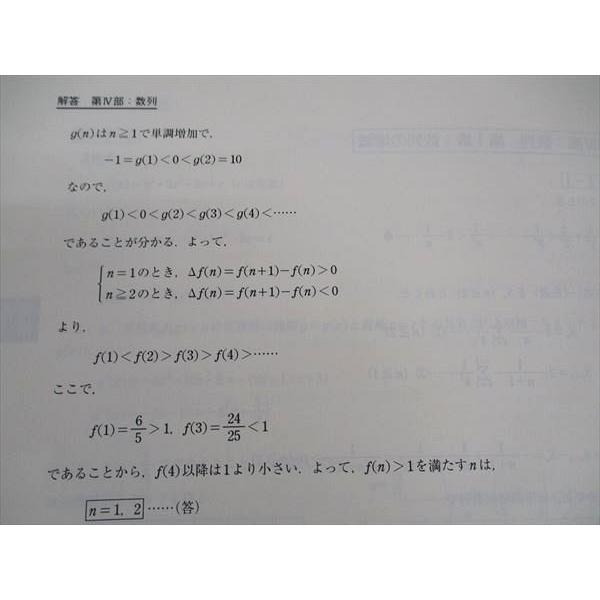 解答 第Ⅳ部：数列
g(n)はn≧1で単調増加で，
−1=g(1)<0<g(2)=10
なので，
g(1)<0<g(2)<g(3)<g(4)<……
であることが分かる．よって，
n=1のとき，Δf(n)=f(n+1)−f(n)>0
n≧2のとき，Δf(n)=f(n+1)−f(n)<0
より，
f(1)<f(2)>f(3)>f(4)>……
ここで，
f(1)=6/5>1，f(3)=24/25<1
であることから，f(4)以降は1より小さい．よって，f(n)>1を満たすnは，
n=1，2 ……(答)